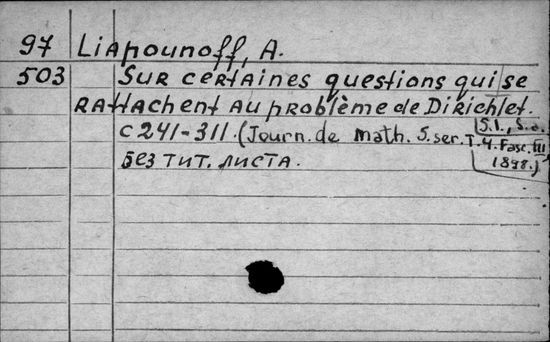 97 Liapounoff, A.
503 Sur certaines questions qui se
rattachent au problème de Dirichlet.
С 241-311. (Journ. de Math. 5. ser. T. 4. Fasc. III
1898.)
S.l., S.a.
Без тит. листа.